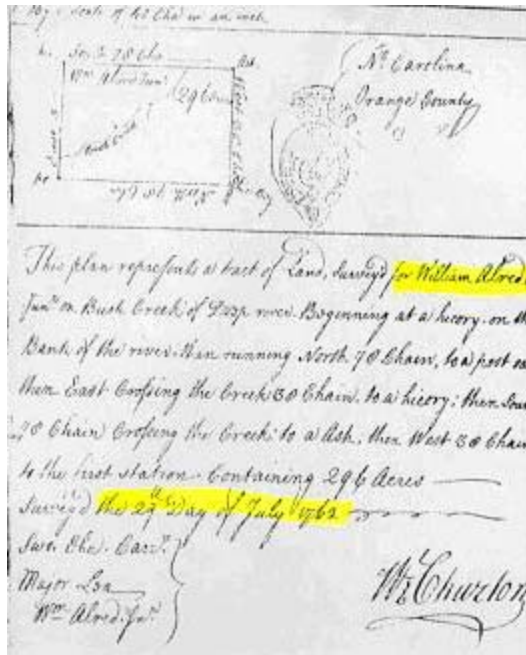 By a Scale of 40 Cha in an inch
So. 78 Cha
Wm Alred Junr
296
No Carolina
Orange County
Bush Creek
North 78 Cha
This plan represents a tract of Land, Survey'd for William Alred
Junr on Bush Creek of Deep river. Beginning at a hicory. on th
Bank of the river. then running North 78 Chain, to a post oa
then East Crossing the Creek 38 Chain. to a hicory; then Sou
78 Chain Crossing the Creek; to a Ash, then West 38 Chain
to the first station - Containing 296 Acres
Survey'd the 29th Day of July 1762
Swo. Cha. Carrs.
Major
Wm Alred. Jnr.
Wm Churton